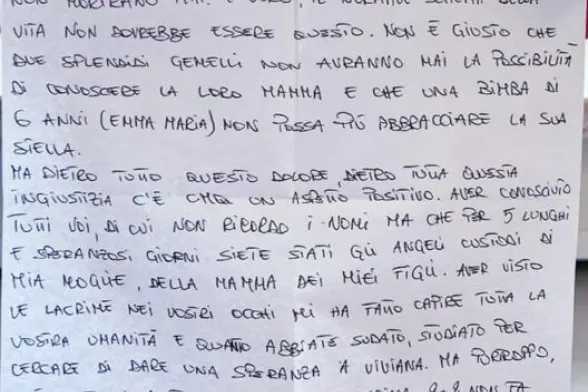 VITA NON DOVREBBE ESSERE QUESTO. NON È GIUSTO CHE
DUE SPLENDIDI GEMELLI NON AVRANNO MAI LA POSSIBILITÀ
DI CONOSCERE LA LORO MAMMA E CHE UNA BIMBA DI
6 ANNI (EMMA MARIA) NON POSSA PIÙ ABBRACCIARE LA SUA
STELLA.
MA DIETRO TUTTO QUESTO DOLORE, DIETRO TUTTA QUESTA
INGIUSTIZIA C'È CMQ UN ASPETTO POSITIVO. AVER CONOSCIUTO
TUTTI VOI, DI CUI NON RICORDO I NOMI MA CHE PER 5 LUNGHI
E SPERANZOSI GIORNI SIETE STATI GLI ANGELI CUSTODI DI
MIA MOGLIE, DELLA MAMMA DEI MIEI FIGLI. AVER VISTO
LE LACRIME NEI VOSTRI OCCHI MI HA FATTO CAPIRE TUTTA LA
VOSTRA UMANITÀ E QUANTO ABBIATE SUDATO, STUDIATO PER
CERCARE DI DARE UNA SPERANZA A VIVIANA. MA PURTROPPO,